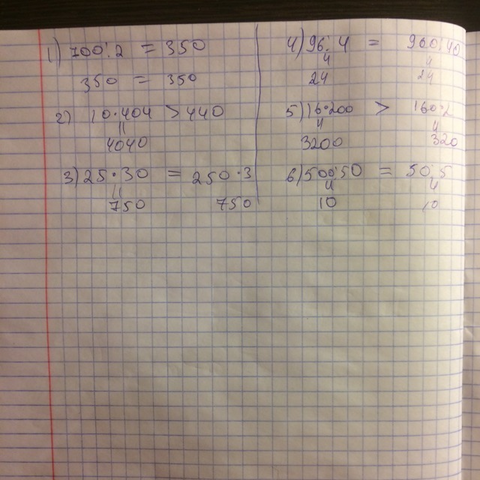 1) 700:2 = 350
350 = 350
2) 10·404 > 440
4040
3) 25·30 = 250·3
750 750
4) 96:4 = 960:40
24 24
5) 16·200 > 160·2
3200 320
6) 500:50 = 50:5
10 10